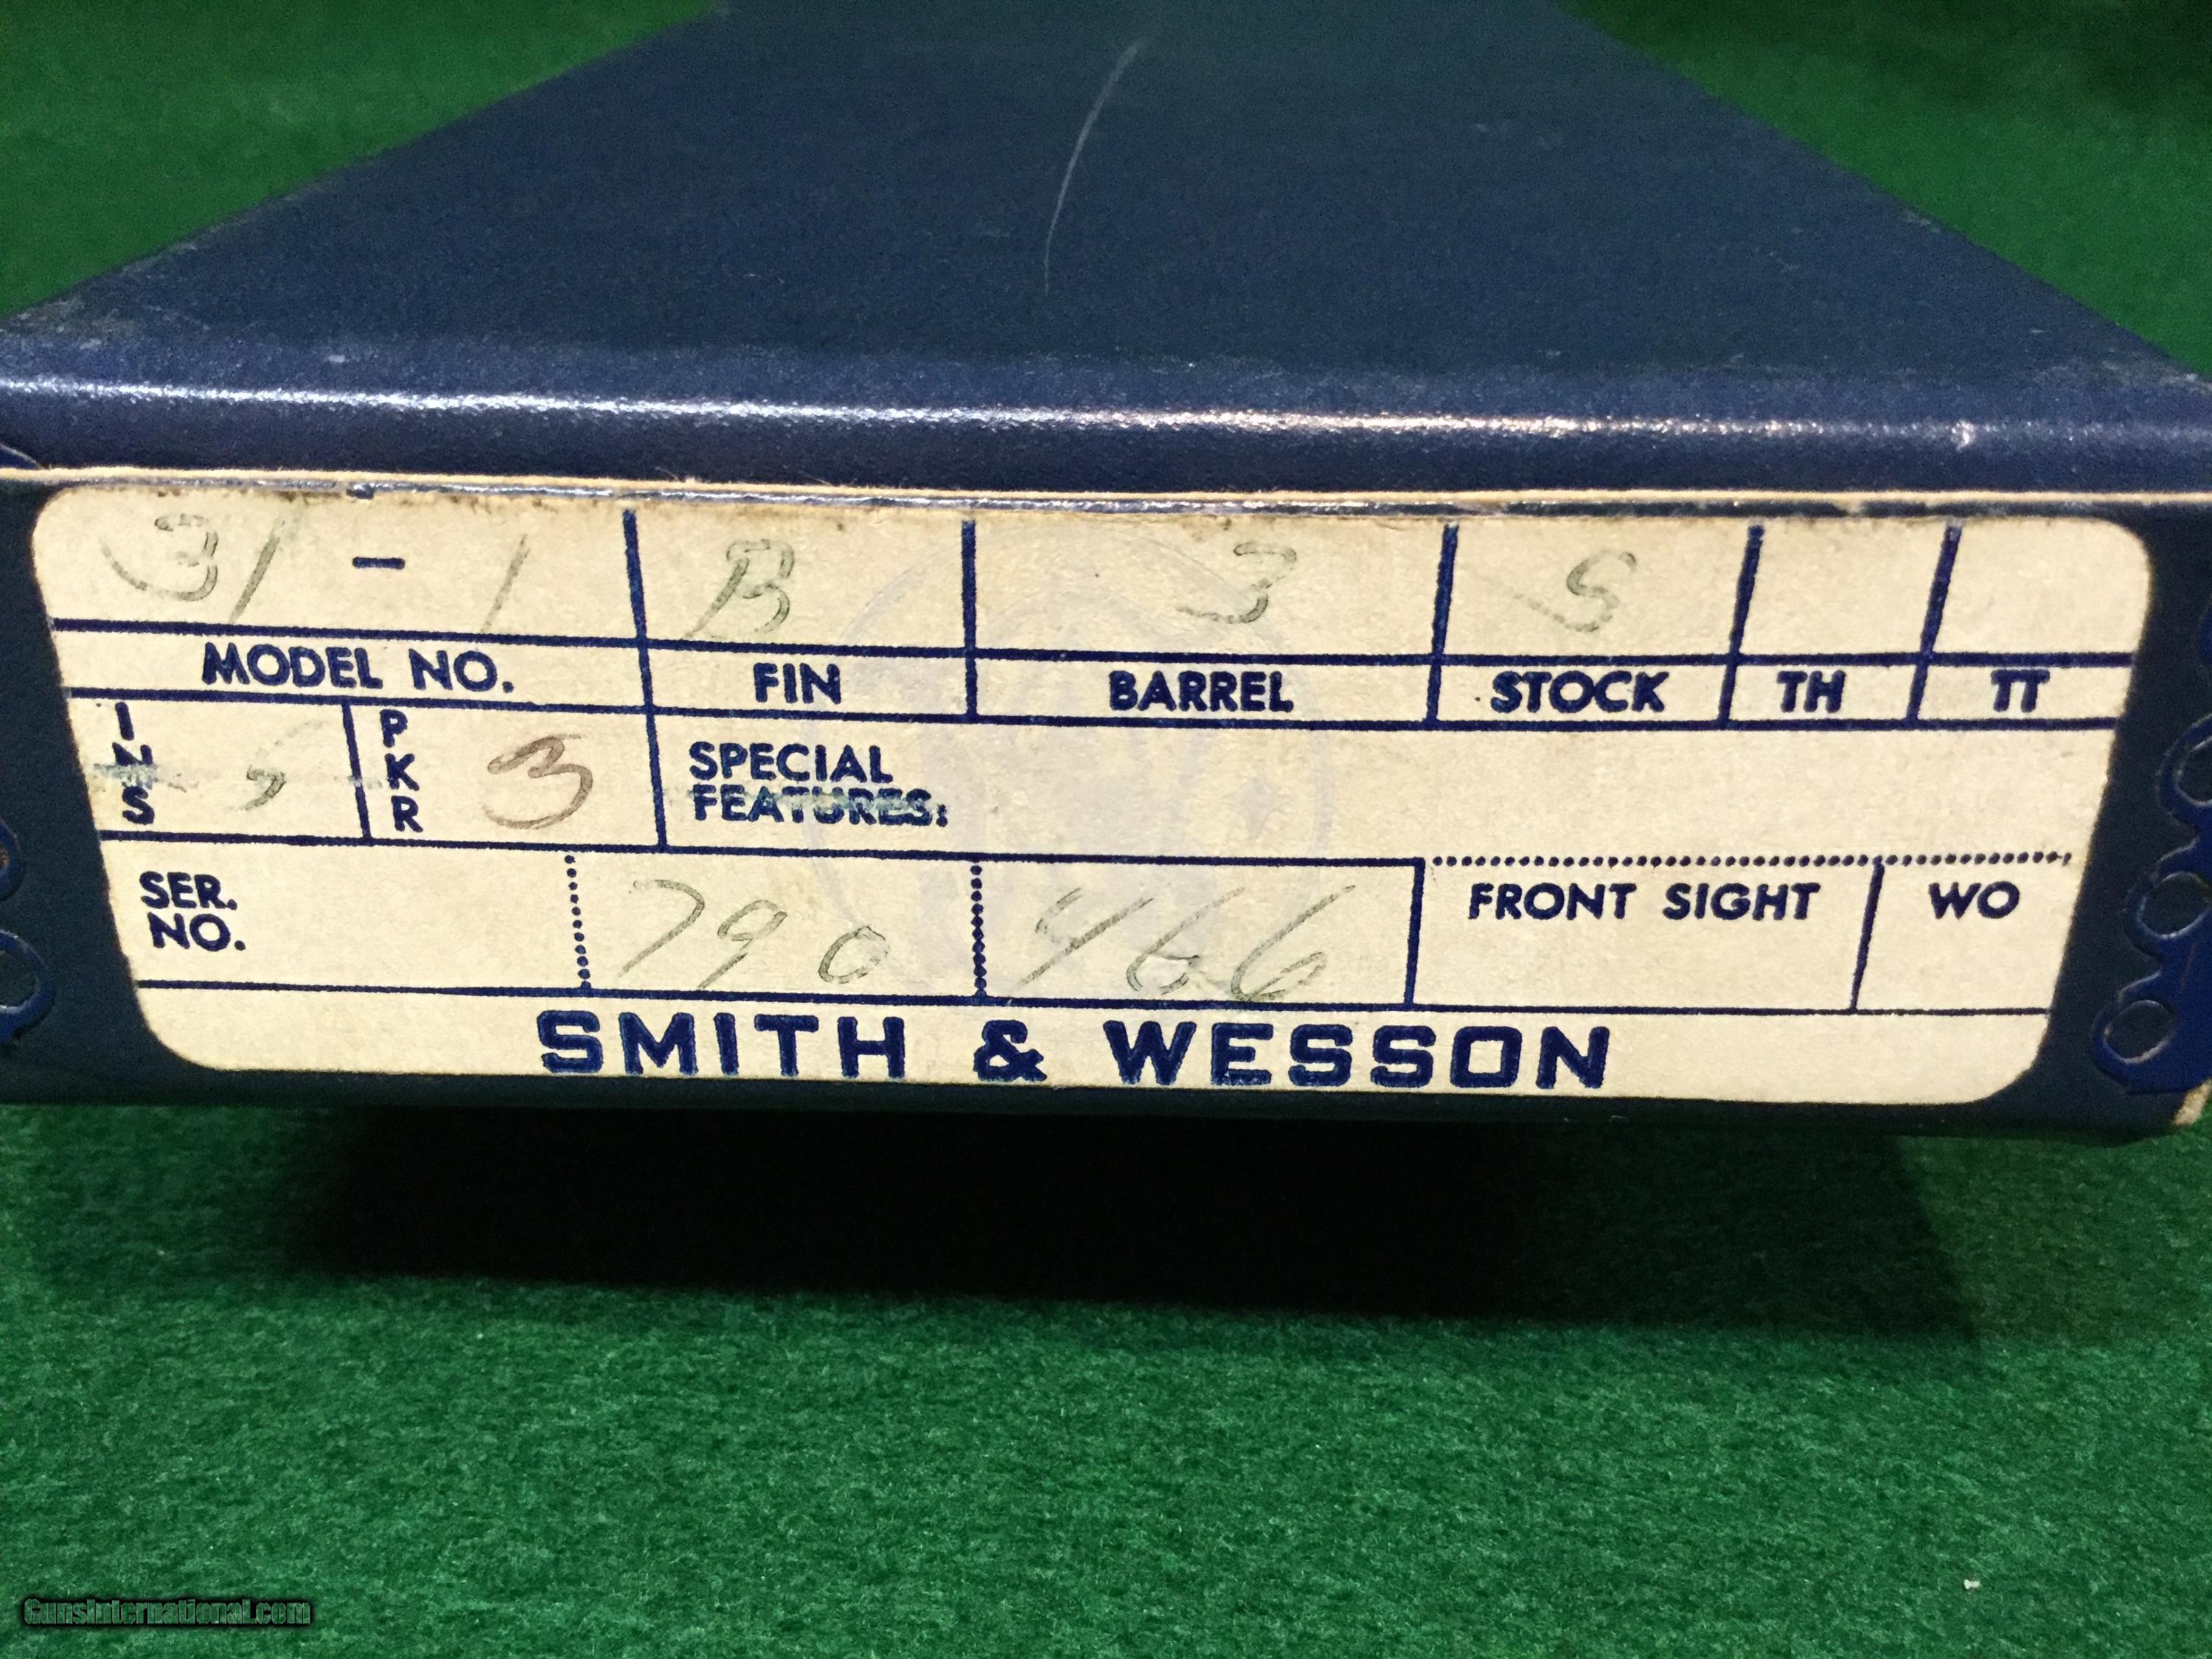 31 - 1 B 3 S
MODEL NO. FIN BARREL STOCK TH TT
INS 5 PKR 3 SPECIAL
FEATURES:
SER.
NO. 790 466 FRONT SIGHT WO
SMITH & WESSON
GunsInternational.com